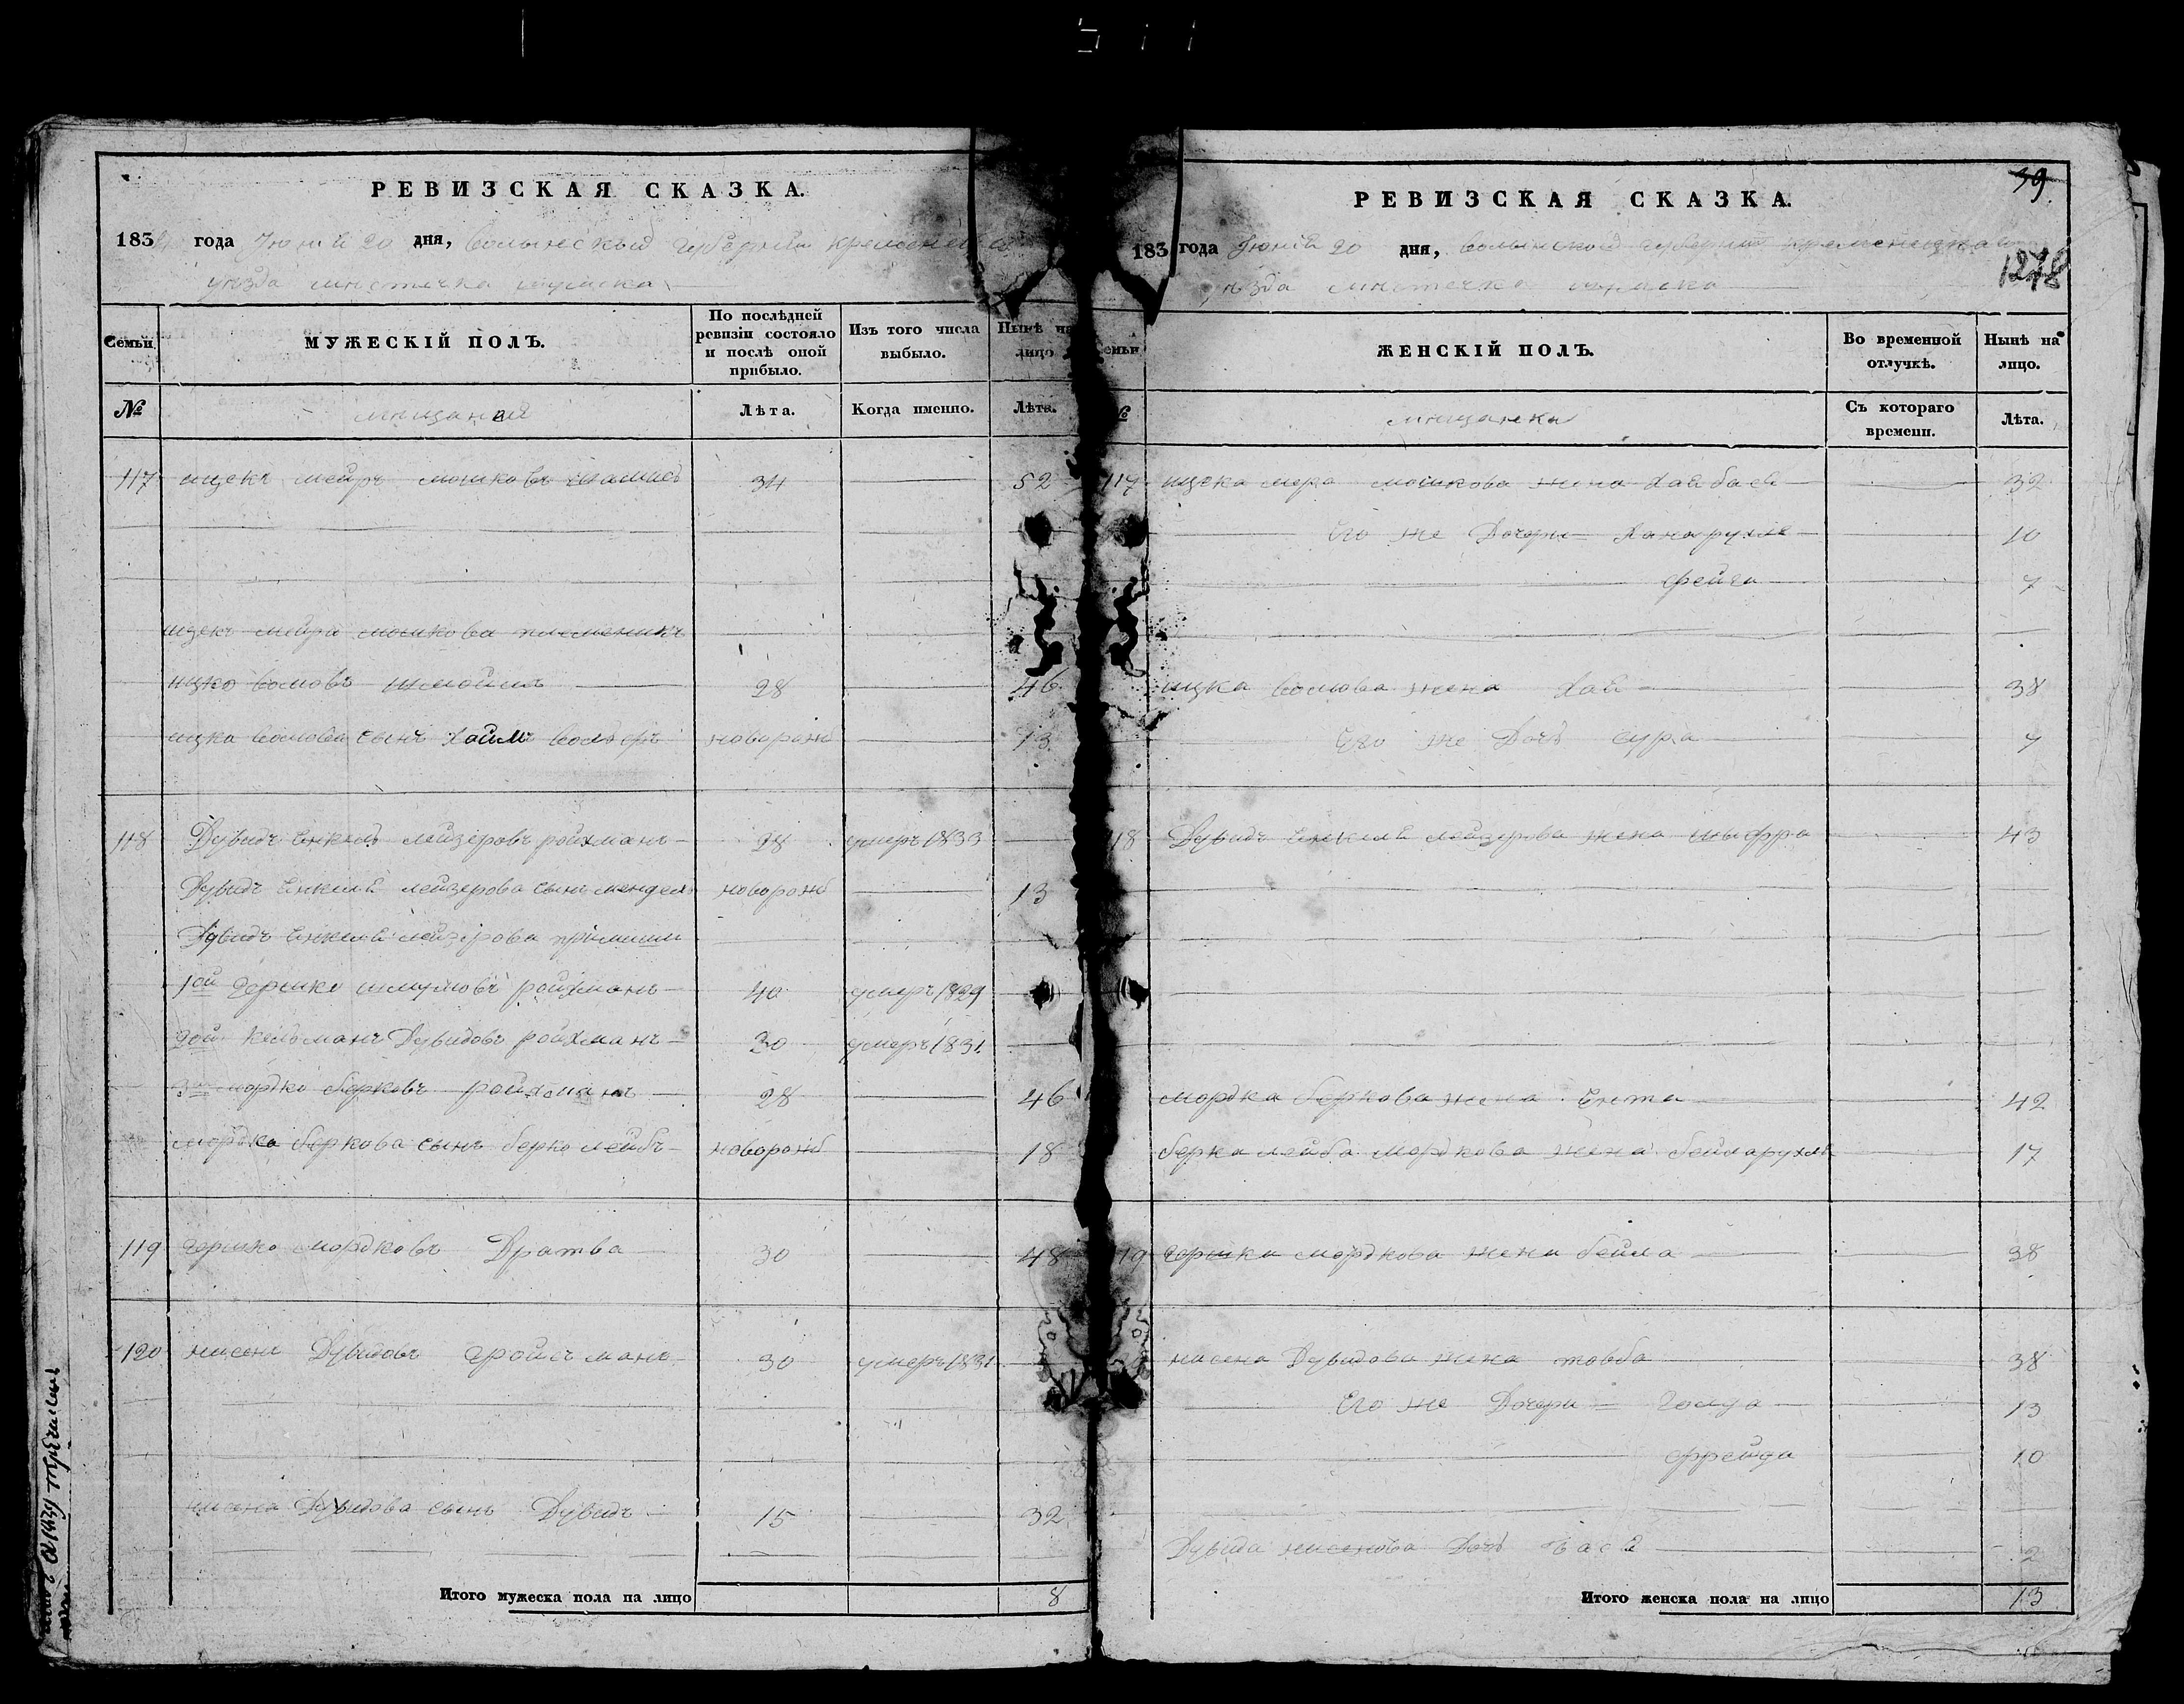 РЕВИЗСКАЯ СКАЗКА.
183 года Іюня 20 дня, волынской губерніи кременецка
уезда местечка
Семьи МУЖЕСКІЙ ПОЛЪ. По послѣдней ревизіи состояло и послѣ оной прибыло. Изъ того числа выбыло. Нынѣ на лицо
№ мещаней Лѣта. Когда именно. Лѣта.
117 ицекъ меиръ мошковъ 34 52
ицекъ меира мошкова племеникъ
ицко волювъ 28 46
ицка волюва сынъ хаимъ вольфъ новорожд 13
118 Дувидъ лейзеровъ ройхманъ 28 умеръ 1833
Дувидъ лейзерова сынъ мендель новорожд 13
Дувидъ лейзерова
1ой гершко шмулювъ ройхманъ 40 умеръ 1829
2ой кельманъ Дувидовъ ройхманъ 20 умеръ 1831
3 мордко берковъ ройхманъ 28 46
мордка беркова сынъ берко лейбъ новорожд 18
119 гершко мордковъ Дратва 30 48
120 нисенъ Дувидовъ гройсманъ 30 умеръ 1831
нисена Дувидова сынъ Дувидъ 15 32
Итого мужеска пола на лицо 8
39
РЕВИЗСКАЯ СКАЗКА.
183 года Іюня 20 дня, волынской губерніи кременецка
1278
уезда местечка
семьи ЖЕНСКІЙ ПОЛЪ. Во временной отлучкѣ. Нынѣ на лицо.
№ мещанска Съ котораго времени. Лѣта.
117 ицека мера мошкова жена хая бася 32
Его же Дочери ханарухля 10
фейга 7
ицка волюва жена хая 38
Его же Дочь сура 7
118 Дувидъ лейзерова жена шыфра 43
мордка беркова жена Ента 42
берка лейба мордкова жена бейларухля 17
119 гершка мордкова жена бейла 38
нисена Дувидова жена товба 38
Его же Дочери голда 13
фрейда 10
Дувида нисенова Дочь бася 2
Итого женска пола на лицо 13